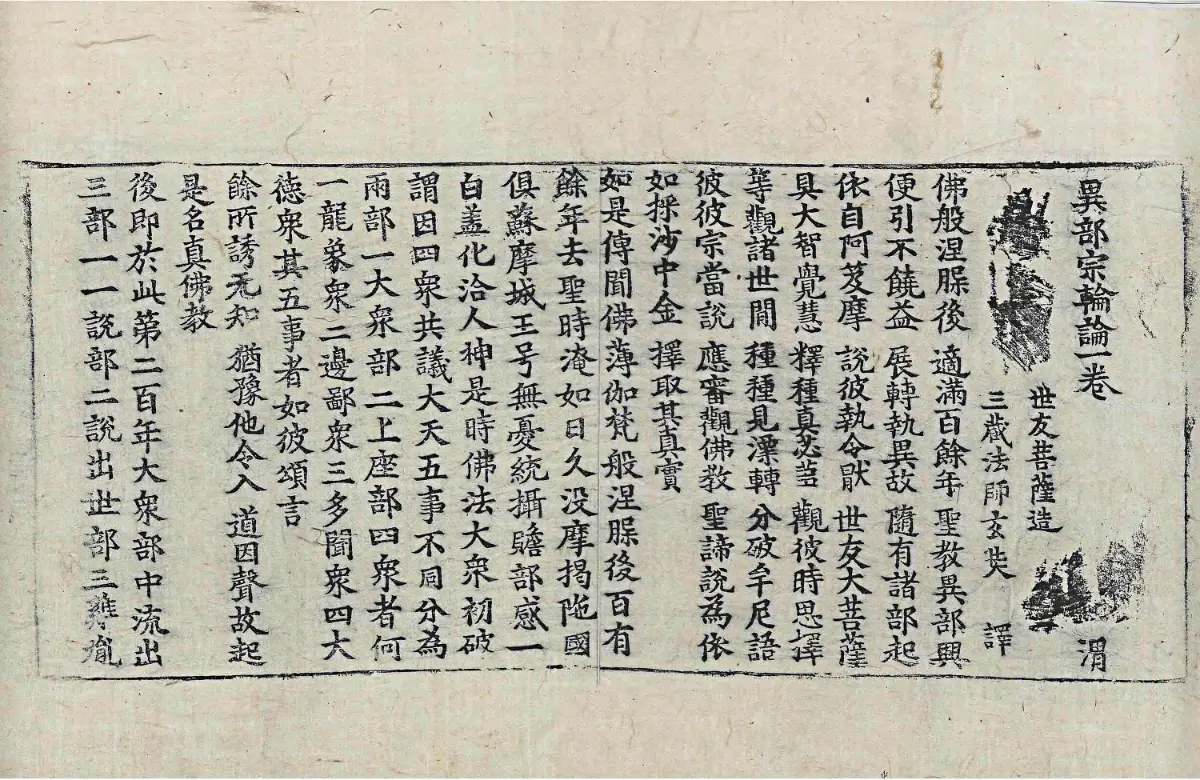 異部宗輪論一卷 渭
世友菩薩造
三藏法師玄奘 譯
佛般涅槃後 適滿百餘年 聖教異部興
便引不饒益 展轉執異故 隨有諸部起
依自阿笈摩 說彼執令猒 世友大菩薩
具大智覺慧 釋種真苾芻 觀彼時思擇
等觀諸世間 種種見漂轉 分破牟尼語
彼彼宗當說 應審觀佛教 聖諦說為依
如採沙中金 擇取其真實
如是傳聞佛薄伽梵般涅槃後百有
餘年去聖時淹如日久沒摩揭陁國
俱蘇摩城王号無憂統攝贍部感一
白盖化洽人神是時佛法大衆初破
謂因四衆共議大天五事不同分為
兩部一大衆部二上座部四衆者何
一龍象衆二邊鄙衆三多聞衆四大
德衆其五事者如彼頌言
餘所誘无知 猶豫他令入 道因聲故起
是名真佛教
後即於此第二百年大衆部中流出
三部一一說部二說出世部三雞胤